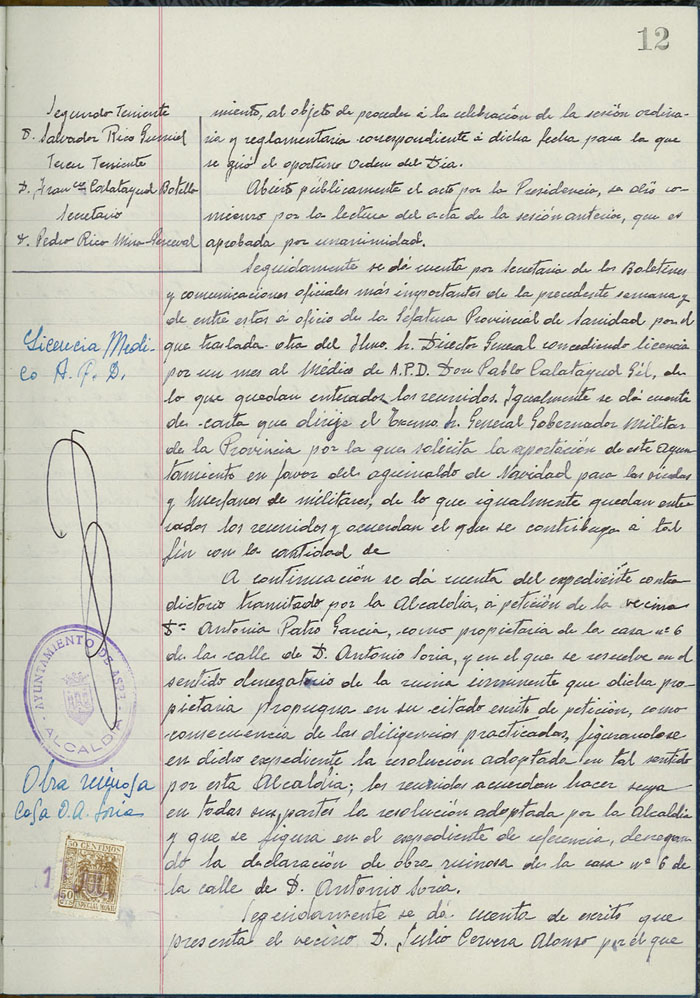 12
Segundo Teniente
D. Salvador Rico Gumiel
Tercer Teniente
D. Franco Calatayud Botella
Secretario
D. Pedro Rico Mira-Perceval
miento, al objeto de proceder á la celebración de la sesión ordina-
ria y reglamentaria correspondiente á dicha fecha para la que
se giró el oportuno Orden del Día.
Abierto públicamente el acto por la Presidencia, se dió co-
mienzo por la lectura del acta de la sesión anterior, que es
aprobada por unanimidad.
Seguidamente se dá cuenta por Secretaria de los Boletines
y comunicaciones oficiales más importantes de la precedente semana y
de entre estas á oficio de la Jefatura Provincial de Sanidad por el
que traslada otra del Ilmo. Sr. Director General concediendo licencia
por un mes al Médico de A.P.D. Don Pablo Calatayud Gil, de
lo que quedan enterados los reunidos. Igualmente se dá cuenta
de carta que dirije el Excmo. Sr. General Gobernador Militar
de la Provincia por la que solicita la aportación de este Ayun-
tamiento en favor del aguinaldo de Navidad para las viudas
y huerfanos de militares, de lo que igualmente quedan ente-
rados los reunidos y acuerdan el que se contribuya á tal
fín con la cantidad de
A continuación se dá cuenta del expediente contra-
dictorio tramitado por la Alcaldia, á petición de la vecina
Dª Antonia Patro Garcia, como propietaria de la casa nº 6
de la calle de D. Antonio Soria, y en el que se resuelve en el
sentido denegatorio de la ruina inminente que dicha pro-
pietaria propugna en su citado escrito de petición, como
consecuencia de las diligencias practicadas, figurandose
en dicho expediente la resolución adoptada en tal sentido
por esta Alcaldia; los reunidos acuerdan hacer suya
en todas sus partes la resolución adoptada por la Alcaldia
y que se figura en el expediente de referencia, denegan-
do la declaración de obra ruinosa de la casa nº 6 de
la calle de D. Antonio Soria.
Segendamente se dá cuenta de escrito que
presenta el vecino D. Julio Cervera Alonso por el que
Licencia Medi-
co A. P. D.
AYUNTAMIENTO DE ASPE
ALCALDIA
Obra ruinosa
Casa D. A. Soria
50 CENTIMOS